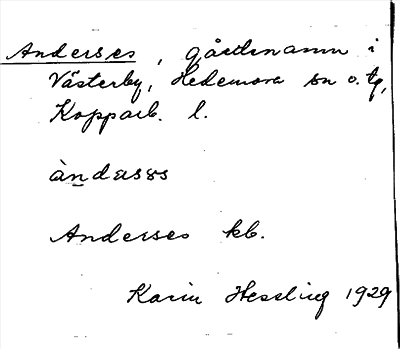 Anderses, gårdsnamn i
Västerby, Hedemora sn o. tg,
Kopparb. l.
àndasəs
Anderses kb.
Karin Hessling 1929